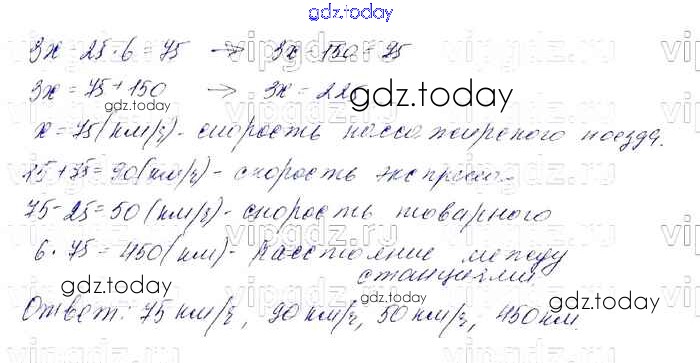 gdz.today
3х - 25·6 = 75 → 3х - 150 = 75
3х = 75 + 150 → 3х = 225
gdz.today
gdz.today
х = 75 (км/ч) - скорость пассажирского поезда.
15 + 75 = 90 (км/ч) - скорость экспресса
75 - 25 = 50 (км/ч) - скорость товарного
6 · 75 = 450 (км) - расстояние между
станциями
gdz.today
gdz.today
Ответ: 75 км/ч, 90 км/ч, 50 км/ч, 450 км.